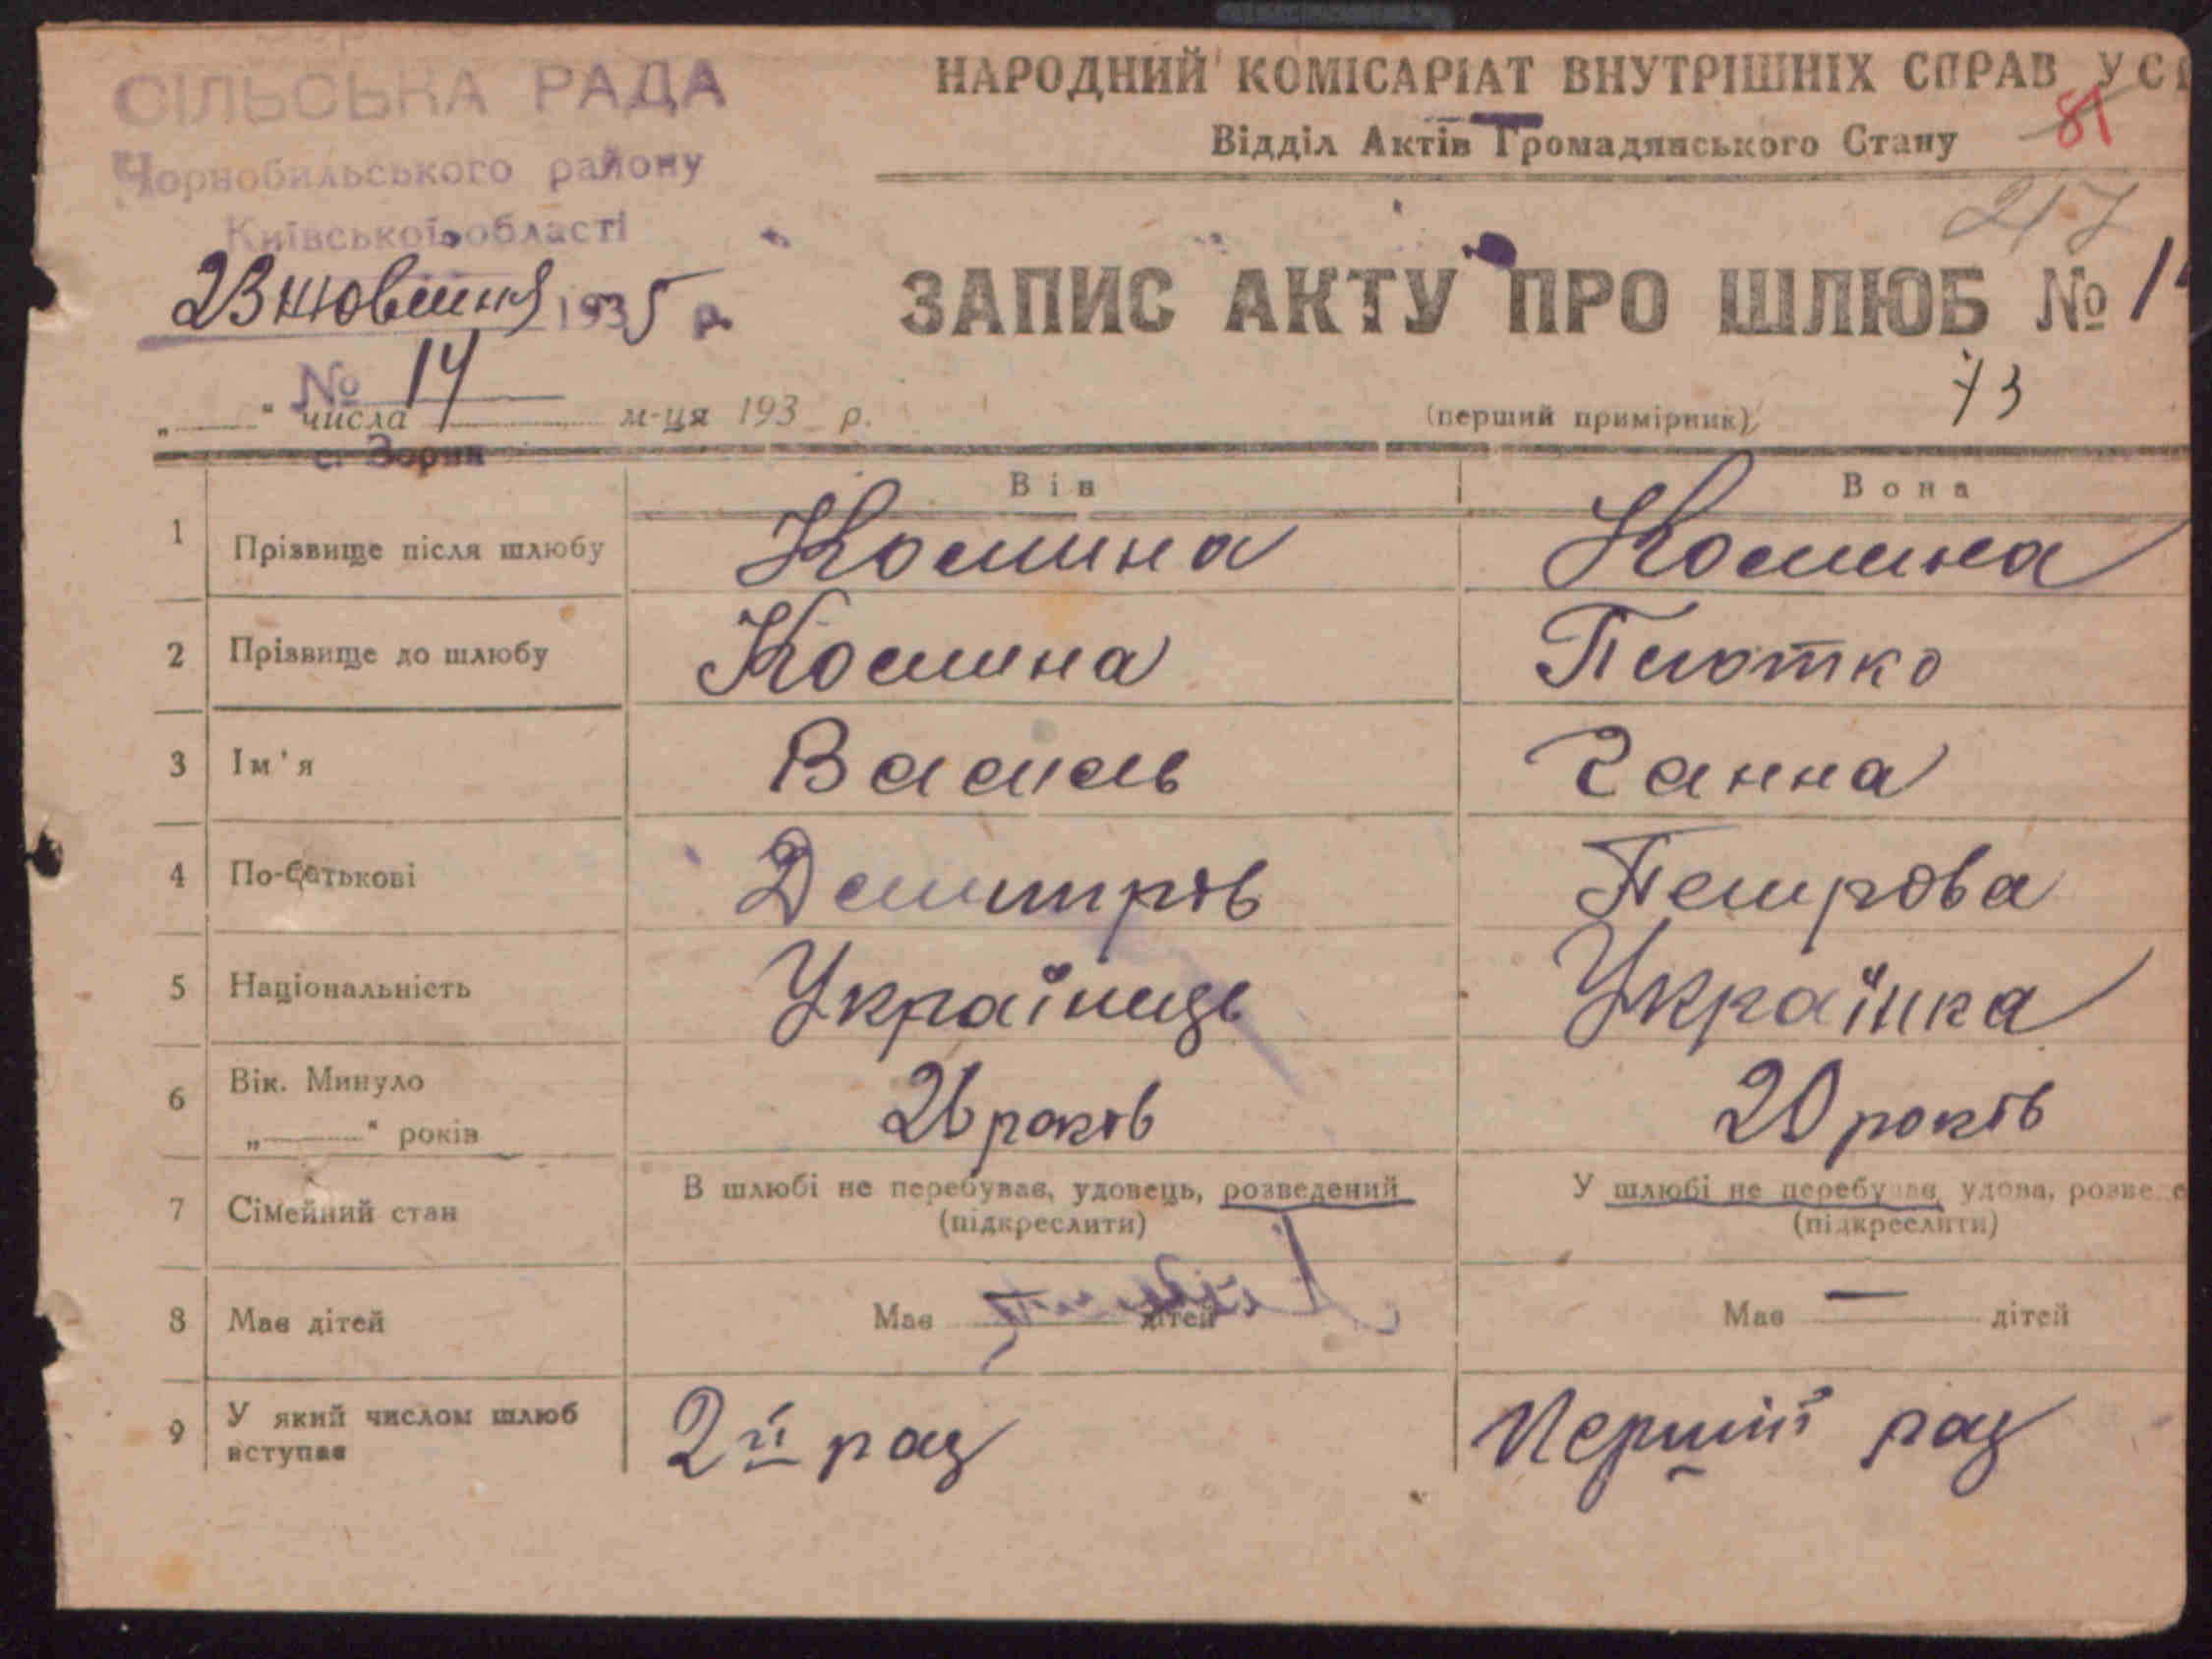 СІЛЬСЬКА РАДА
Чорнобильського району
Київської області
23 жовтня 1935 р.
№ 14
с. Зорин
НАРОДНИЙ КОМІСАРІАТ ВНУТРІШНІХ СПРАВ УС
Відділ Актів Громадянського Стану
81
217
ЗАПИС АКТУ ПРО ШЛЮБ № 1
73
„ “ числа м-ця 193 р.
(перший примірник)
Він Вона
1 Прізвище після шлюбу Космина Космина
2 Прізвище до шлюбу Космина
3 Ім'я Василь Ганна
4 По-батькові Демитрів Петрова
5 Національність Українець Українка
6 Вік. Минуло „ “ років 26 років 20 років
7 Сімейний стан В шлюбі не перебував, удовець, розведений У шлюбі не перебував, удова, розведе
(підкреслити) (підкреслити)
8 Має дітей Має дітей Має — дітей
9 У який числом шлюб вступає 2й раз Перший раз